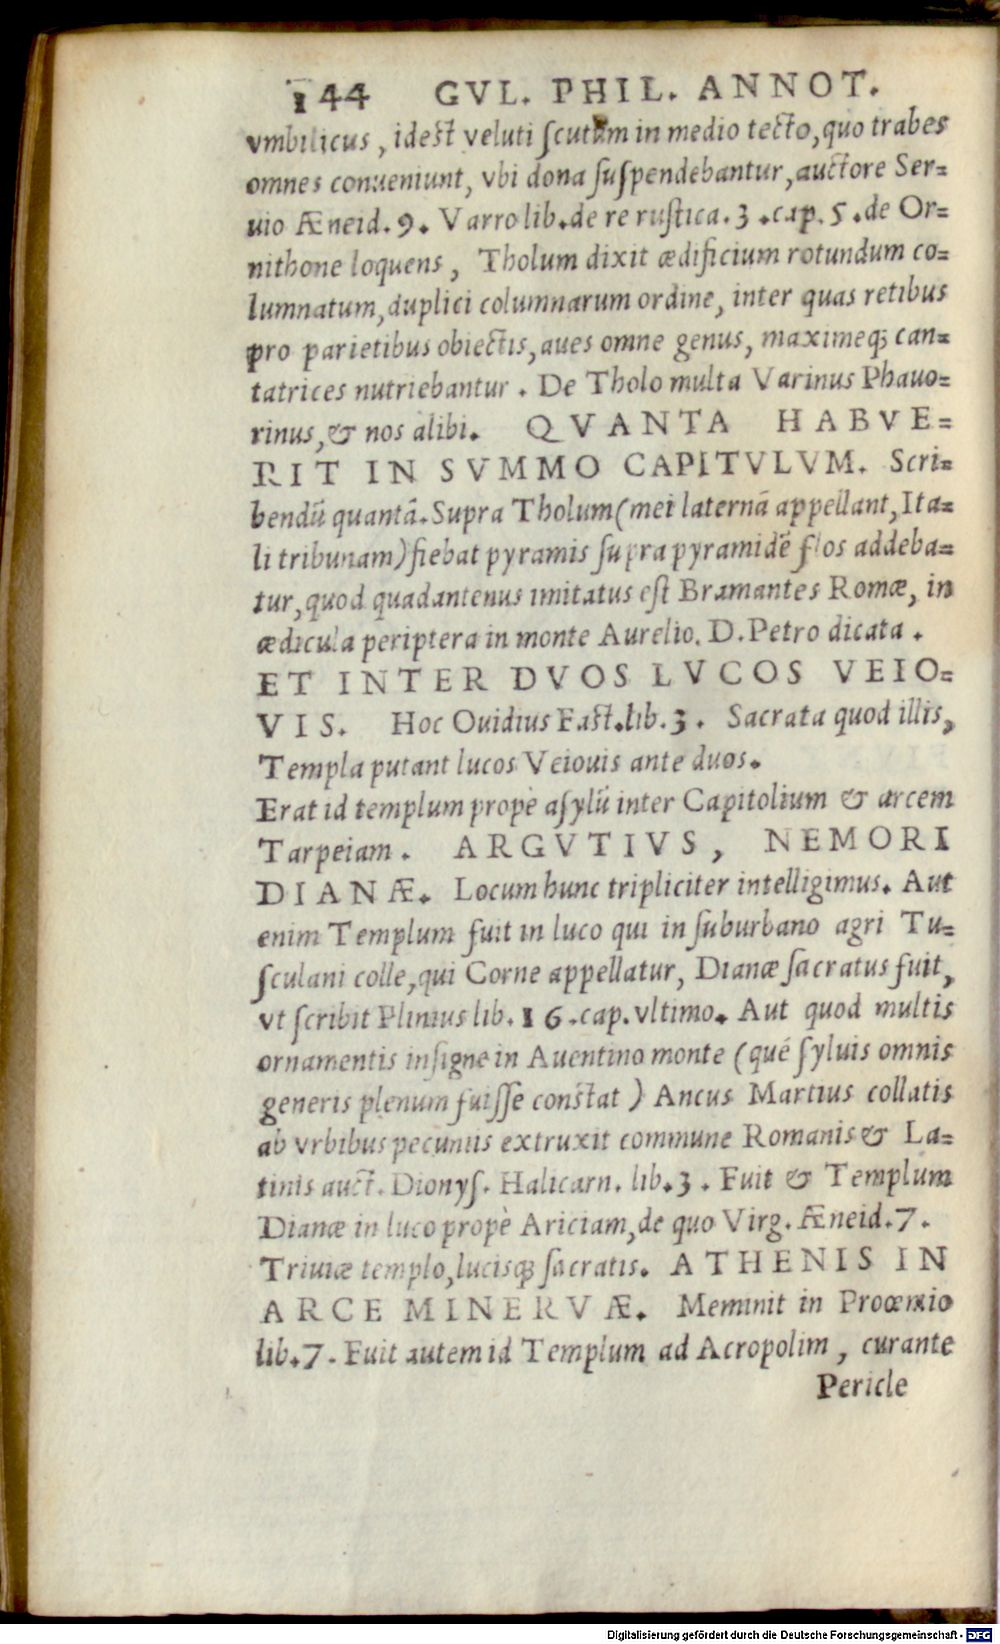 144 GVL. PHIL. ANNOT.
vmbilicus, idest veluti ſcutum in medio tecto, quo trabes
omnes conueniunt, vbi dona ſuſpendebantur, auctore Ser=
uio Æneid. 9. Varro lib. de re ruſtica. 3. cap. 5. de Or=
nithone loquens, Tholum dixit ædificium rotundum co=
lumnatum, duplici columnarum ordine, inter quas retibus
pro parietibus obiectis, aues omne genus, maximeqȝ can=
tatrices nutriebantur. De Tholo multa Varinus Phauo=
rinus, & nos alibi. QVANTA HABVE=
RIT IN SVMMO CAPITVLVM. Scri=
bendū quantā. Supra Tholum (mei laternā appellant, Ita=
li tribunam) fiebat pyramis ſupra pyramidē flos addeba=
tur, quod quadantenus imitatus eſt Bramantes Romæ, in
ædicula periptera in monte Aurelio. D. Petro dicata.
ET INTER DVOS LVCOS VEIO=
VIS. Hoc Ouidius Fast. lib. 3. Sacrata quod illis,
Templa putant lucos Veiouis ante duos.
Erat id templum propè aſylū inter Capitolium & arcem
Tarpeiam. ARGVTIVS, NEMORI
DIANÆ. Locum hunc tripliciter intelligimus. Aut
enim Templum fuit in luco qui in ſuburbano agri Tu=
ſculani colle, qui Corne appellatur, Dianæ ſacratus fuit,
vt ſcribit Plinius lib. 16. cap. vltimo. Aut quod multis
ornamentis inſigne in Auentino monte (qué ſyluis omnis
generis plenum fuiſſe constat) Ancus Martius collatis
ab vrbibus pecuniis extruxit commune Romanis & La=
tinis auct. Dionyſ. Halicarn. lib. 3. Fuit & Templum
Dianæ in luco propè Ariciam, de quo Virg. Æneid. 7.
Triuiæ templo, lucisqȝ ſacratis. ATHENIS IN
ARCE MINERVÆ. Meminit in Proœmio
lib. 7. Fuit autem id Templum ad Acropolim, curante
Pericle
Digitalisierung gefördert durch die Deutsche Forschungsgemeinschaft - DFG